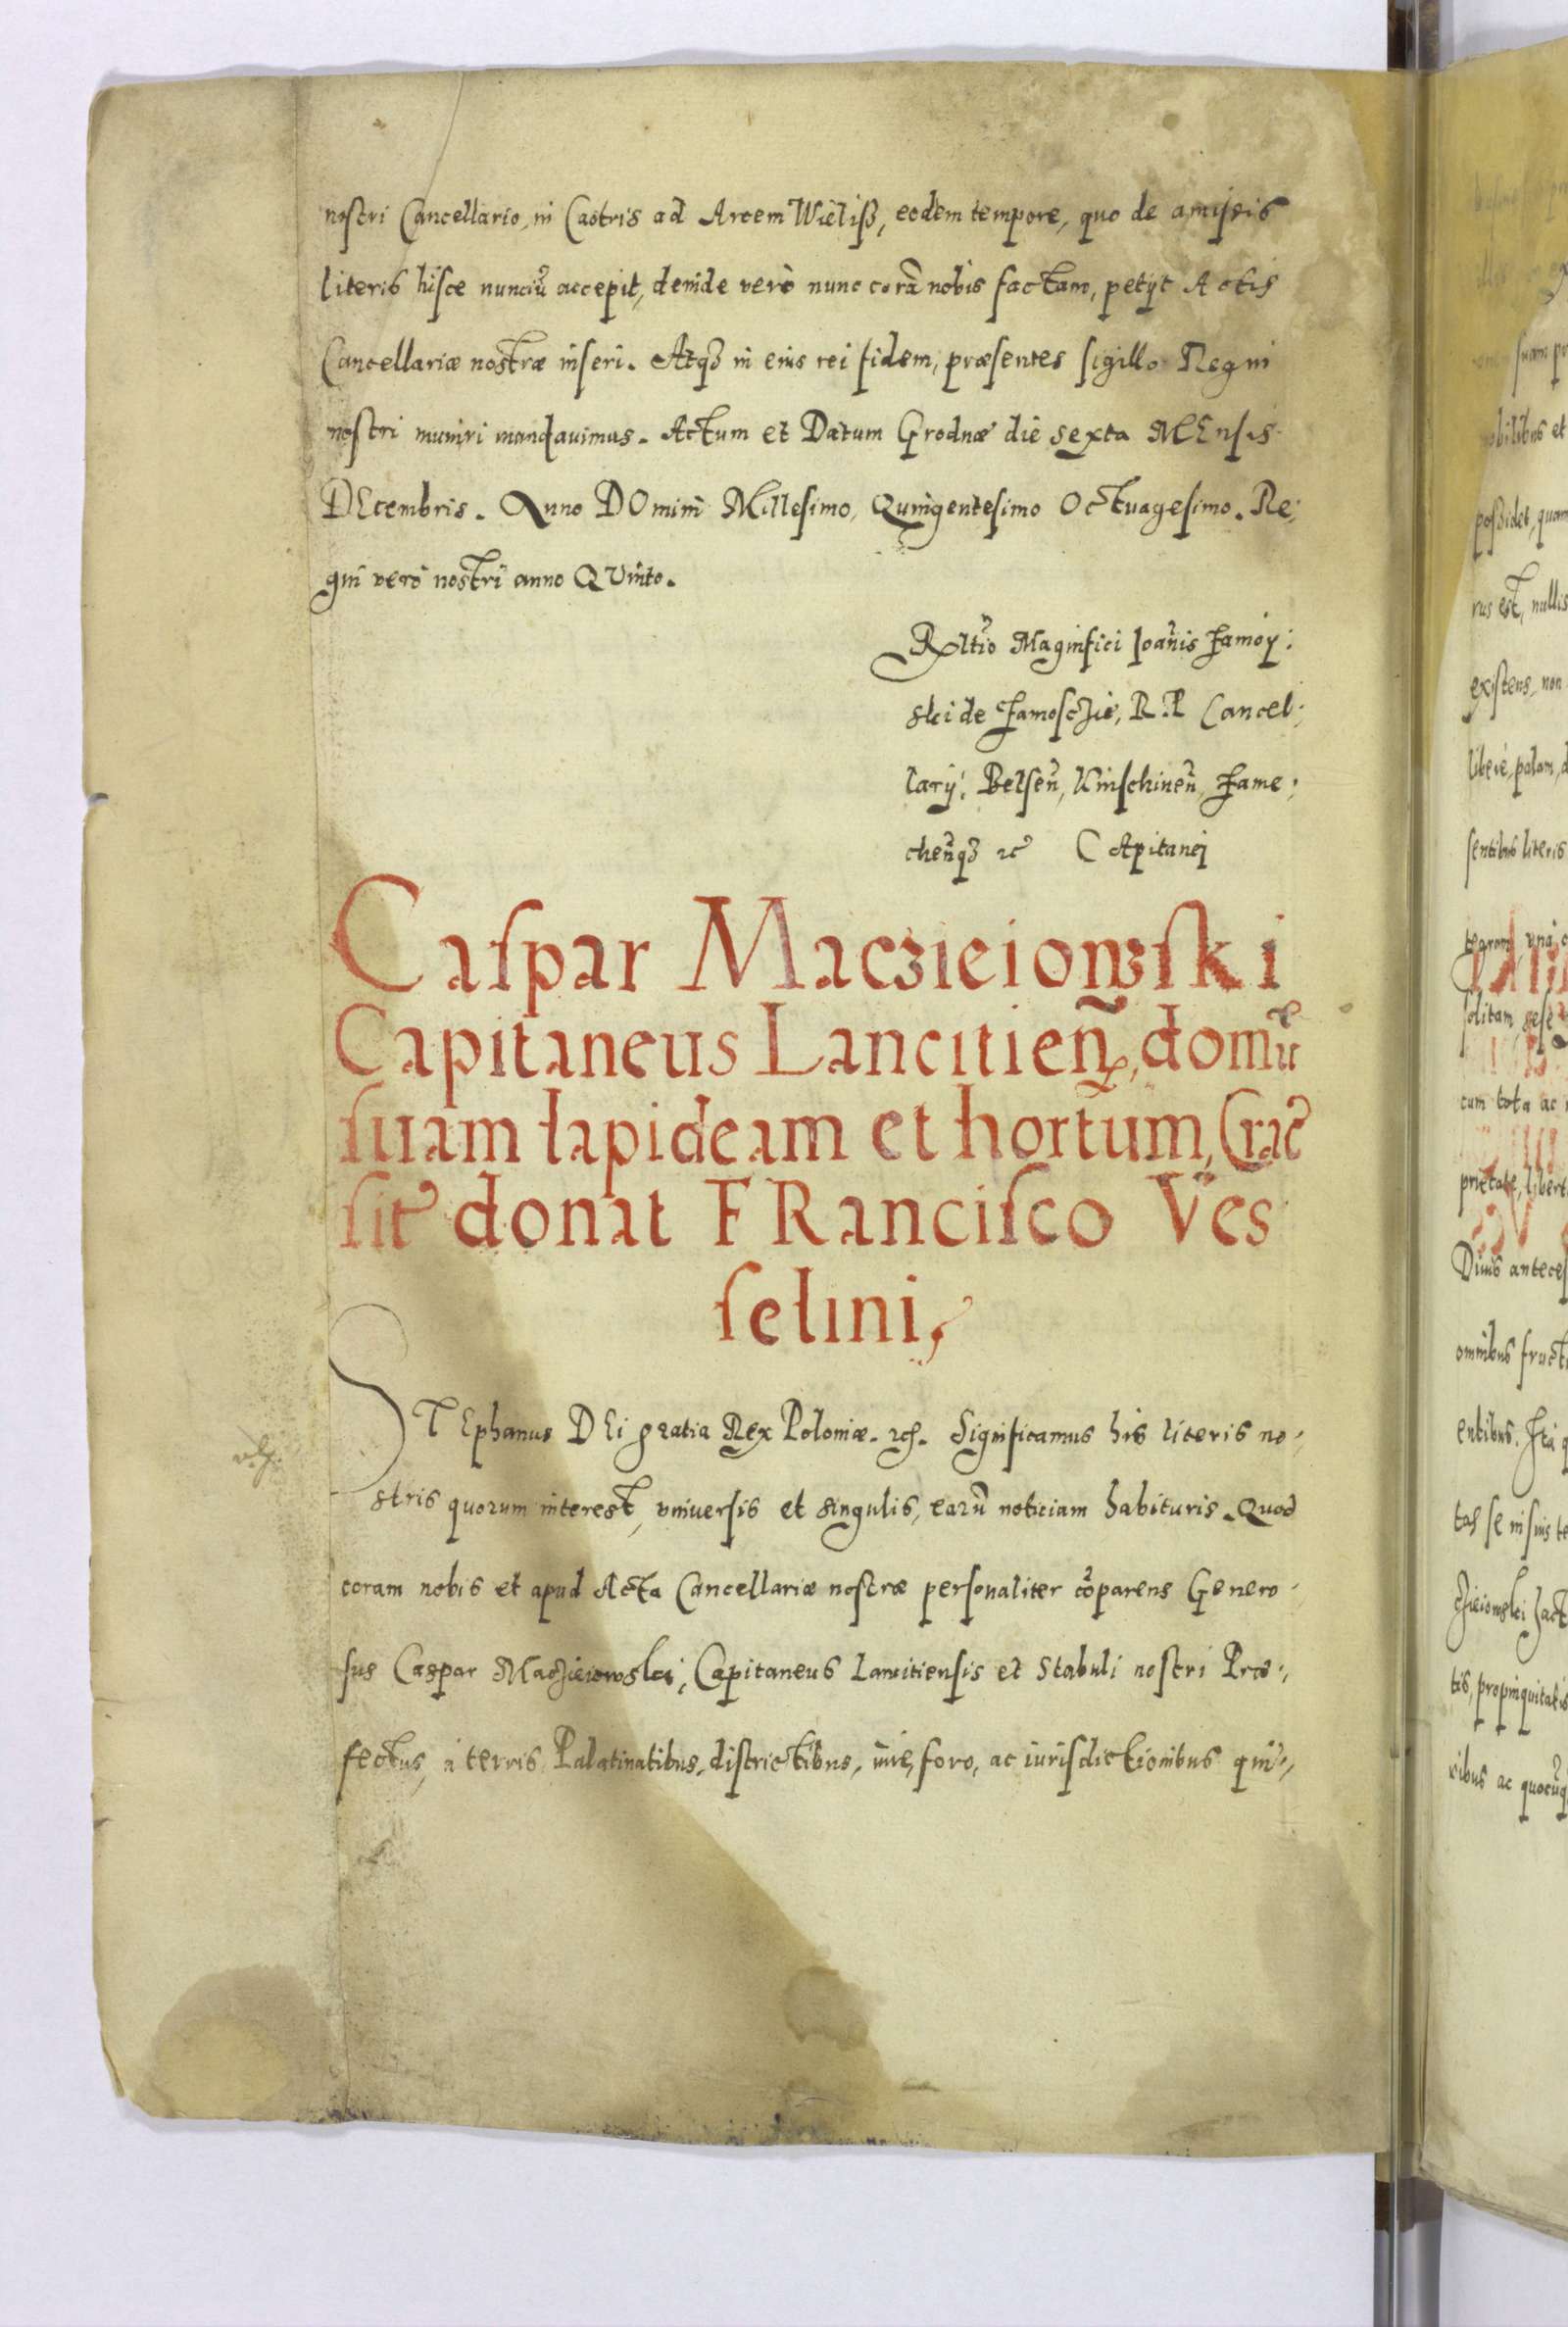 nostri Cancellario, in Castris ad Arcem Wielisz, eodem tempore, quo de amissis
literis hisce nunciũ accepit, deinde verò nunc corã nobis factam, petijt Actis
Cancellariæ nostræ inseri. Atqꝫ in eius rei fidem, præsentes sigillo Regni
nostri muniri mandauimus. Actum et Datum Grodnæ die sexta MEnsis
DEcembris. Anno DOmini Millesimo, Quingentesimo Octuagesimo. Re:
gni verò nostri anno QVinto.
Rltio Magnifici Joãnis Zamoy:
ski de Zamosczie, R. P. Cancel:
larij, Belseñ, Knischineñ, Zame:
cheñqꝫ ⁊c CApitanej
Caspar Maczieiowski
Capitaneus Lancitieñ, domũ
suam lapideam et hortum, Crac
sit donat FRancisco Ves
selini,
STEphanus DEi gratia Rex Poloniæ. ⁊c. Significamus his literis no:
stris quorum interest, vniuersis et singulis, earũ noticiam habituris. Quod
coram nobis et apud Acta Cancellariæ nostræ personaliter cõparens Genero:
sus Caspar Maczieiowski, Capitaneus Lancitiensis et Stabuli nostri Præ:
fectus, à terris Palatinatibus, districtibus, iure, foro, ac iurisdictionibus
suam
nobilibus et
possidet, quam
rus est, nullis
existens, non
liberè, palam,
sentibus literis
vnà
solitam sese
cum tota ac
omnibus
entibus. Ita
tas se in suis
czieiowski
tis, propinquitatis
ribus ac